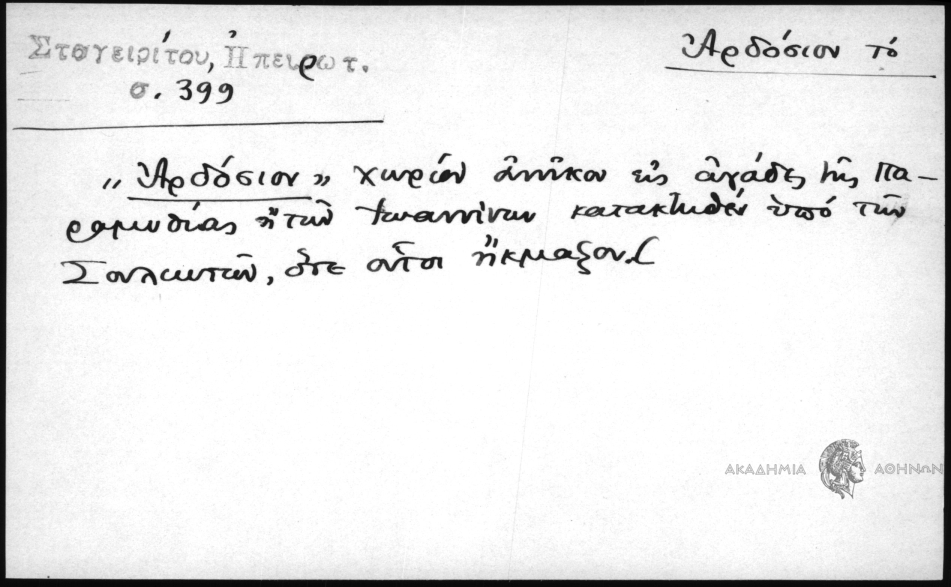 Σταγειρίτου, Ἠπειρωτ.
σ. 399
Ἀρδόσιον τό
„Ἀρδόσιον" χωρίον ἀνῆκον εἰς ἀγάδες τῆς Πα-
ραμυθίας ἢ τῶν Ἰωαννίνων κατακτηθέν ὑπό τῶν
Σουλιωτῶν, ὅτε οὗτοι ἤκμαζον.(
ΑΚΑΔΗΜΙΑ ΑΘΗΝΩΝ